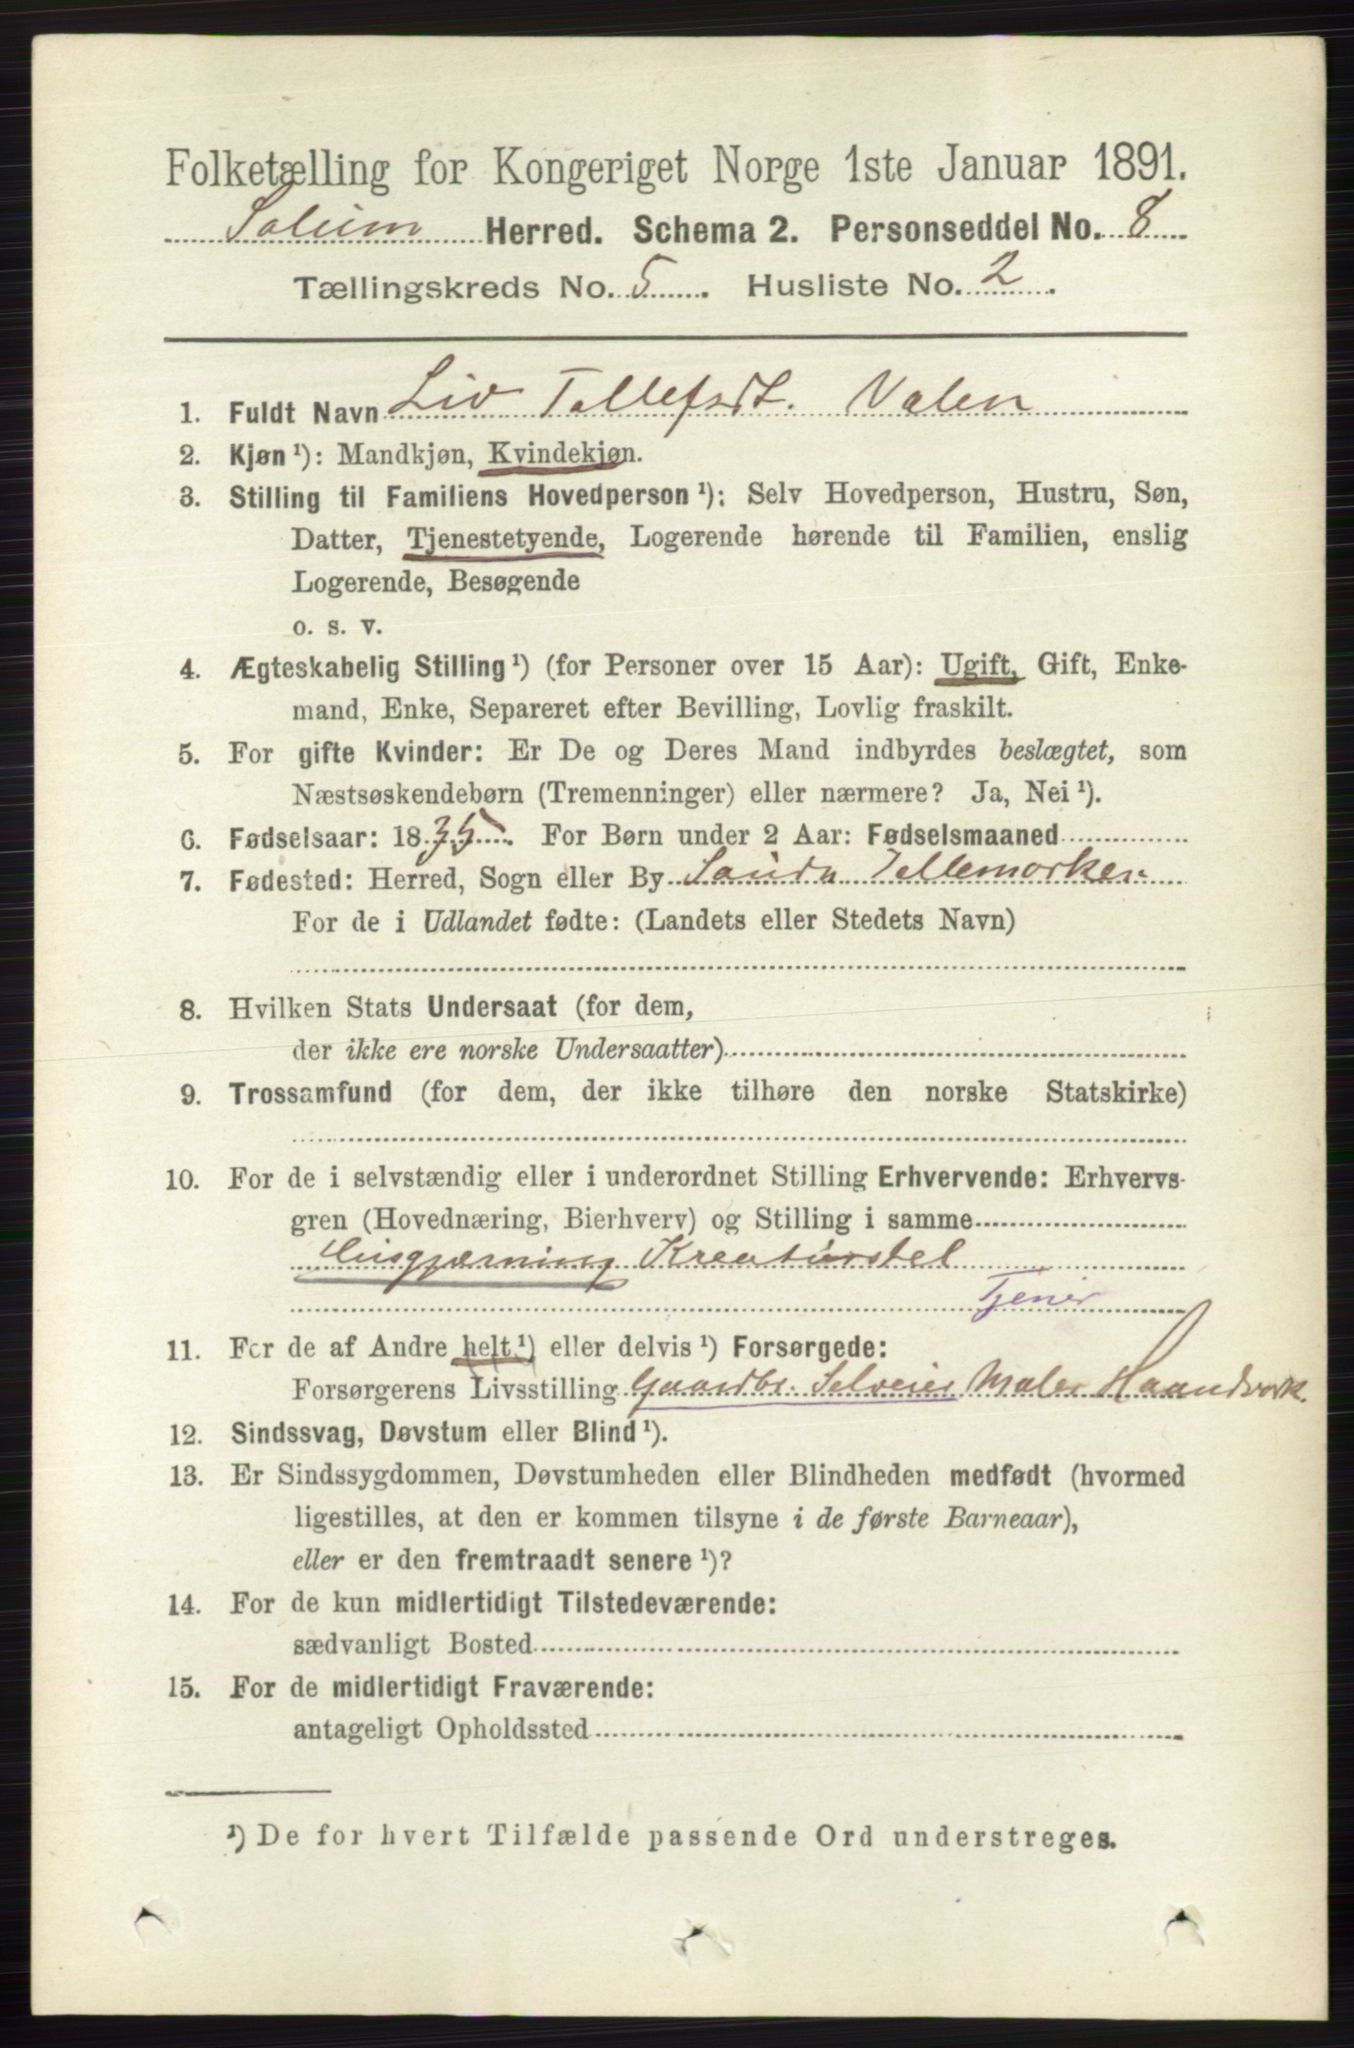 Folketælling for Kongeriget Norge 1ste Januar 1891.
Solum Herred. Schema 2. Personseddel No. 8
Tællingskreds No. 5. Husliste No. 2.
1. Fuldt Navn Liv Tollefsdt. Valen
2. Kjøn ¹): Mandkjøn, Kvindekjøn.
3. Stilling til Familiens Hovedperson ¹): Selv Hovedperson, Hustru, Søn,
Datter, Tjenestetyende, Logerende hørende til Familien, enslig
Logerende, Besøgende
o. s. v.
4. Ægteskabelig Stilling ¹) (for Personer over 15 Aar): Ugift, Gift, Enke-
mand, Enke, Separeret efter Bevilling, Lovlig fraskilt.
5. For gifte Kvinder: Er De og Deres Mand indbyrdes beslægtet, som
Næstsøskendebørn (Tremenninger) eller nærmere? Ja, Nei ¹).
6. Fødselsaar: 1835. For Børn under 2 Aar: Fødselsmaaned
7. Fødested: Herred, Sogn eller By Saude Tellemarken
For de i Udlandet fødte: (Landets eller Stedets Navn)
8. Hvilken Stats Undersaat (for dem,
der ikke ere norske Undersaatter)
9. Trossamfund (for dem, der ikke tilhøre den norske Statskirke)
10. For de i selvstændig eller i underordnet Stilling Erhvervende: Erhvervs-
gren (Hovednæring, Bierhverv) og Stilling i samme
Husgjærning Kreaturstel
Tjener
11. For de af Andre helt ¹) eller delvis ¹) Forsørgede:
Forsørgerens Livsstilling Gaardbr. Selveier Maler Haandverk.
12. Sindssvag, Døvstum eller Blind ¹).
13. Er Sindssygdommen, Døvstumheden eller Blindheden medfødt (hvormed
ligestilles, at den er kommen tilsyne i de første Barneaar),
eller er den fremtraadt senere ¹)?
14. For de kun midlertidigt Tilstedeværende:
sædvanligt Bosted
15. For de midlertidigt Fraværende:
antageligt Opholdssted
¹) De for hvert Tilfælde passende Ord understreges.